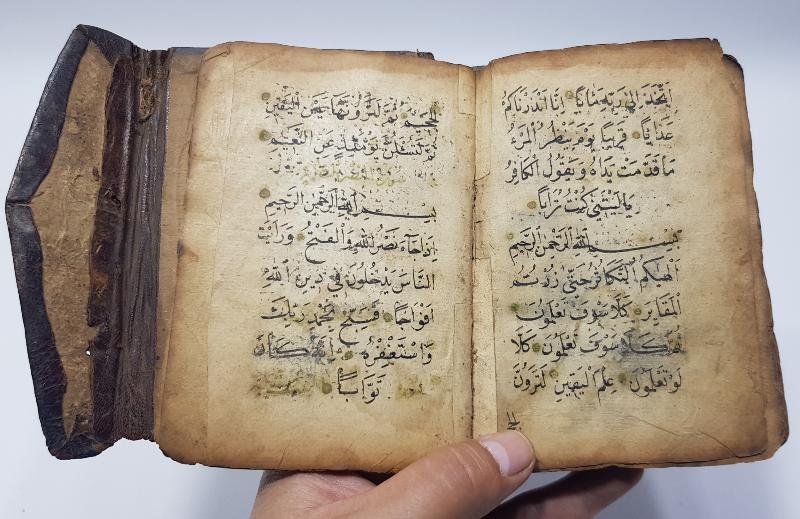 اتخذ إلى ربه مآبا إنا أنذرناكم
عذابا قريبا يوم ينظر المرء
ما قدمت يداه ويقول الكافر
يا ليتني كنت ترابا
بسم الله الرحمن الرحيم
ألهيكم التكاثر حتى زرتم
المقابر كلا سوف تعلمون
ثم كلا سوف تعلمون كلا
لو تعلمون علم اليقين لترون
الجحيم ثم لترونها عين اليقين
ثم لتسئلن يومئذ عن النعيم
بسم الله الرحمن الرحيم
إذا جاء نصر الله والفتح ورأيت
الناس يدخلون في دين الله
أفواجا فسبح بحمد ربك
واستغفره إنه كان
توابا